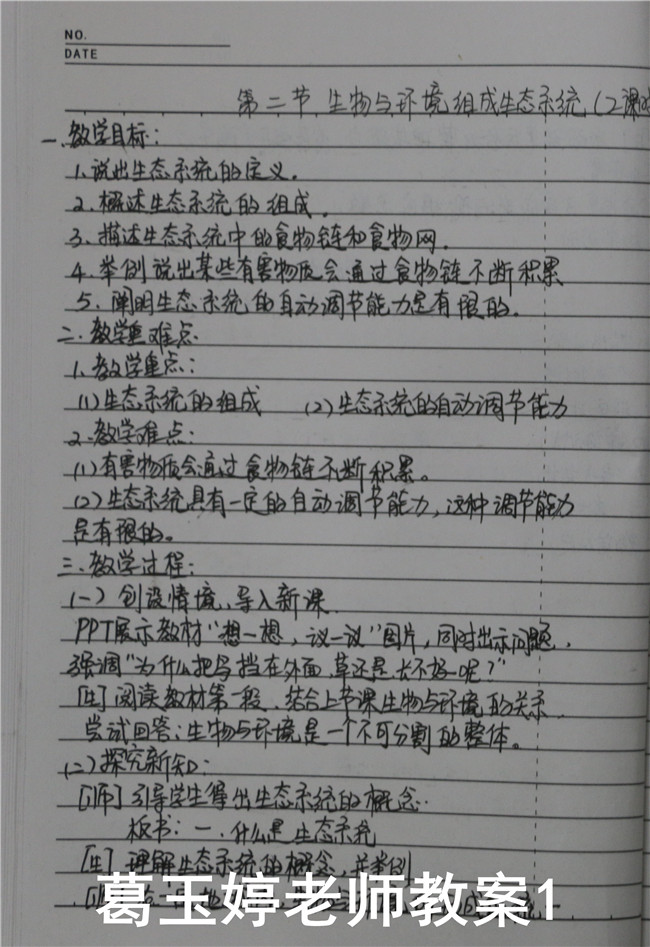 NO.
DATE
第二节 生物与环境组成生态系统(2课时
一、教学目标:
1、说出生态系统的定义。
2、概述生态系统的组成。
3、描述生态系统中的食物链和食物网。
4、举例说出某些有害物质会通过食物链不断积累
5、阐明生态系统的自动调节能力是有限的。
二、教学重难点
1、教学重点:
(1)生态系统的组成 (2)生态系统的自动调节能力
2、教学难点:
(1)有害物质会通过食物链不断积累。
(2)生态系统具有一定的自动调节能力,这种调节能力
是有限的。
三、教学过程:
(一)创设情境,导入新课
PPT展示教材“想一想,议一议”图片,同时出示问题,
强调“为什么把鸟挡在外面,草还是长不好呢?”
[生]阅读教材第一段,结合上节课生物与环境的关系
尝试回答:生物与环境是一个不可分割的整体。
(二)探究新知:
[师]引导学生得出生态系统的概念
板书:一、什么是生态系统
[生]理解生态系统的概念,并举例
葛玉婷老师教案1